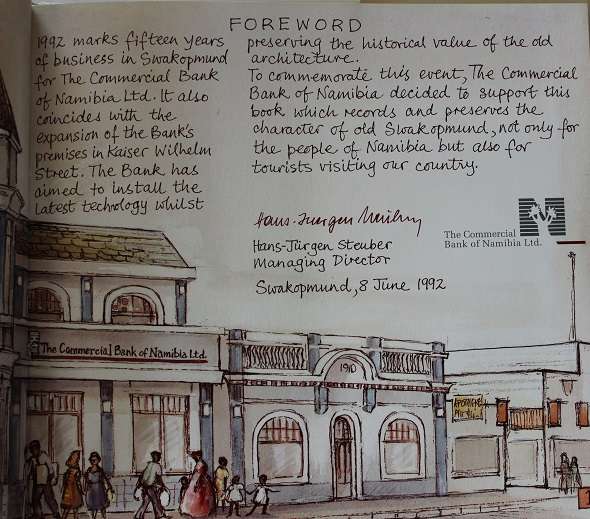 FOREWORD
1992 marks fifteen years
of business in Swakopmund
for The Commercial Bank
of Namibia Ltd. It also
coincides with the
expansion of the Bank's
premises in Kaiser Wilhelm
Street. The Bank has
aimed to install the
latest technology whilst
preserving the historical value of the old
architecture.
To commemorate this event, The Commercial
Bank of Namibia decided to support this
book which records and preserves the
character of old Swakopmund, not only for
the people of Namibia but also for
tourists visiting our country.
Hans-Jürgen Steuber
Managing Director
Swakopmund, 8 June 1992
The Commercial
Bank of Namibia Ltd.
The Commercial Bank of Namibia Ltd.
1910